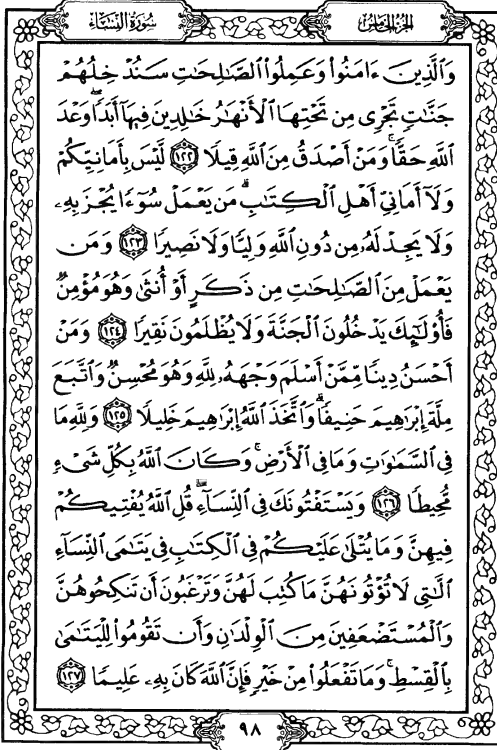 سُورَةُ النِّسَاءِ
الجُزْءُ الخَامِسُ
وَالَّذِينَ ءَامَنُوا۟ وَعَمِلُوا۟ الصَّٰلِحَٰتِ سَنُدْخِلُهُمْ
جَنَّٰتٍ تَجْرِى مِن تَحْتِهَا الْأَنْهَٰرُ خَٰلِدِينَ فِيهَآ أَبَدًا ۖ وَعْدَ
اللَّهِ حَقًّا ۚ وَمَنْ أَصْدَقُ مِنَ اللَّهِ قِيلًا ١٢٢ لَّيْسَ بِأَمَانِيِّكُمْ
وَلَآ أَمَانِىِّ أَهْلِ الْكِتَٰبِ ۗ مَن يَعْمَلْ سُوٓءًا يُجْزَ بِهِۦ
وَلَا يَجِدْ لَهُۥ مِن دُونِ اللَّهِ وَلِيًّا وَلَا نَصِيرًا ١٢٣ وَمَن
يَعْمَلْ مِنَ الصَّٰلِحَٰتِ مِن ذَكَرٍ أَوْ أُنثَىٰ وَهُوَ مُؤْمِنٌ
فَأُو۟لَٰٓئِكَ يَدْخُلُونَ الْجَنَّةَ وَلَا يُظْلَمُونَ نَقِيرًا ١٢٤ وَمَنْ
أَحْسَنُ دِينًا مِّمَّنْ أَسْلَمَ وَجْهَهُۥ لِلَّهِ وَهُوَ مُحْسِنٌ وَاتَّبَعَ
مِلَّةَ إِبْرَٰهِيمَ حَنِيفًا ۗ وَاتَّخَذَ اللَّهُ إِبْرَٰهِيمَ خَلِيلًا ١٢٥ وَلِلَّهِ مَا
فِى السَّمَٰوَٰتِ وَمَا فِى الْأَرْضِ ۚ وَكَانَ اللَّهُ بِكُلِّ شَىْءٍ
مُّحِيطًا ١٢٦ وَيَسْتَفْتُونَكَ فِى النِّسَآءِ ۖ قُلِ اللَّهُ يُفْتِيكُمْ
فِيهِنَّ وَمَا يُتْلَىٰ عَلَيْكُمْ فِى الْكِتَٰبِ فِى يَتَٰمَى النِّسَآءِ
الَّٰتِى لَا تُؤْتُونَهُنَّ مَا كُتِبَ لَهُنَّ وَتَرْغَبُونَ أَن تَنكِحُوهُنَّ
وَالْمُسْتَضْعَفِينَ مِنَ الْوِلْدَٰنِ وَأَن تَقُومُوا۟ لِلْيَتَٰمَىٰ
بِالْقِسْطِ ۚ وَمَا تَفْعَلُوا۟ مِنْ خَيْرٍ فَإِنَّ اللَّهَ كَانَ بِهِۦ عَلِيمًا ١٢٧
٩٨